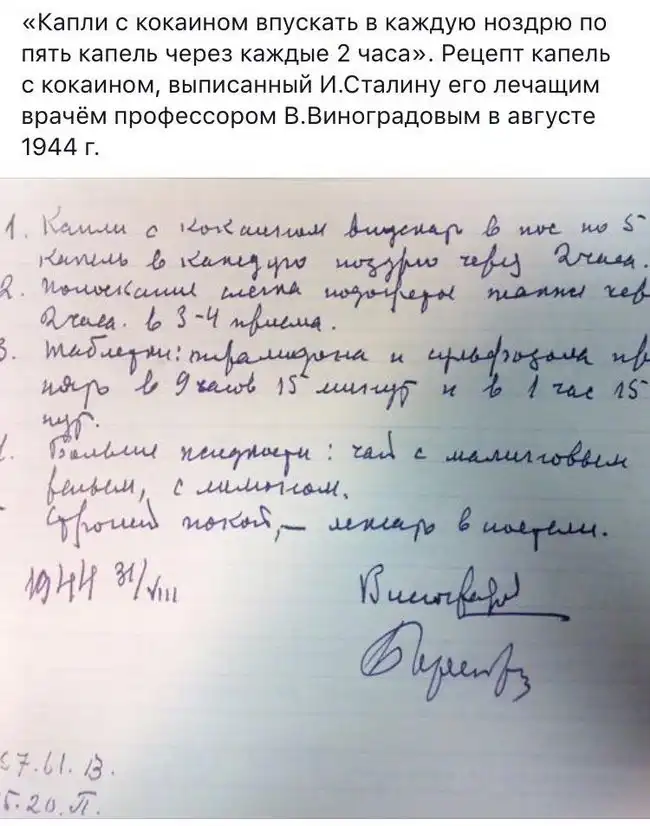 «Капли с кокаином впускать в каждую ноздрю по
пять капель через каждые 2 часа». Рецепт капель
с кокаином, выписанный И.Сталину его лечащим
врачём профессором В.Виноградовым в августе
1944 г.
1. Капли с кокаином впускать в нос по 5
капель в каждую ноздрю через 2 часа.
2. Полоскание слегка подогретое теплое чер
2 часа. в 3-4 приема.
3. Таблетки: пирамидона и сульфозола пр
нять в 9 часов 15 минут и в 1 час 15
нут.
Больше жидкости: чай с малиновым
вареньем, с лимоном.
Строгий покой, – лежать в постели.
1944 31/VIII
Виноградов
27.61.В.
5.20.П.